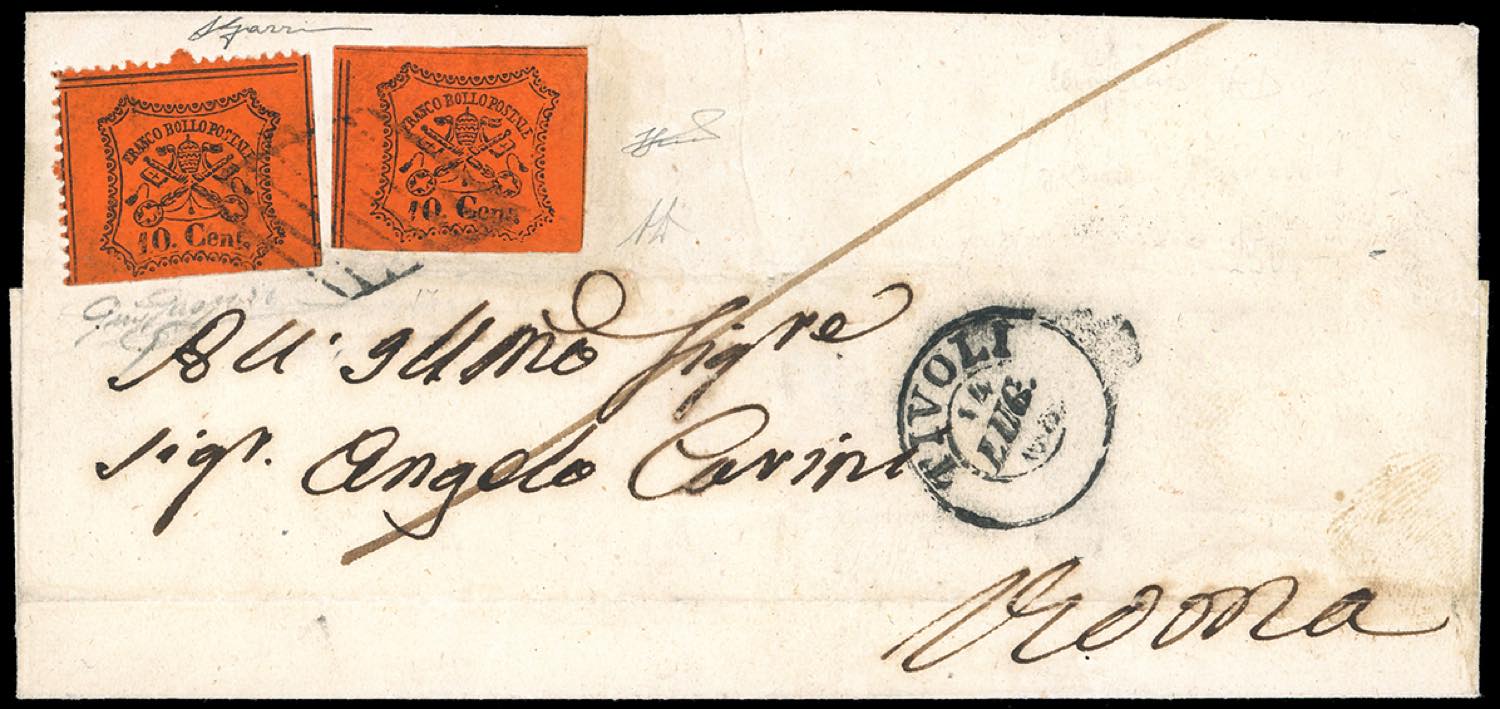 FRANCO BOLLO POSTALE
10. Cent.
FRANCO BOLLO POSTALE
10. Cent.
All' Illmo Sigre
Sigr. Angelo Carini
TIVOLI
14
LUG.
68
Roma